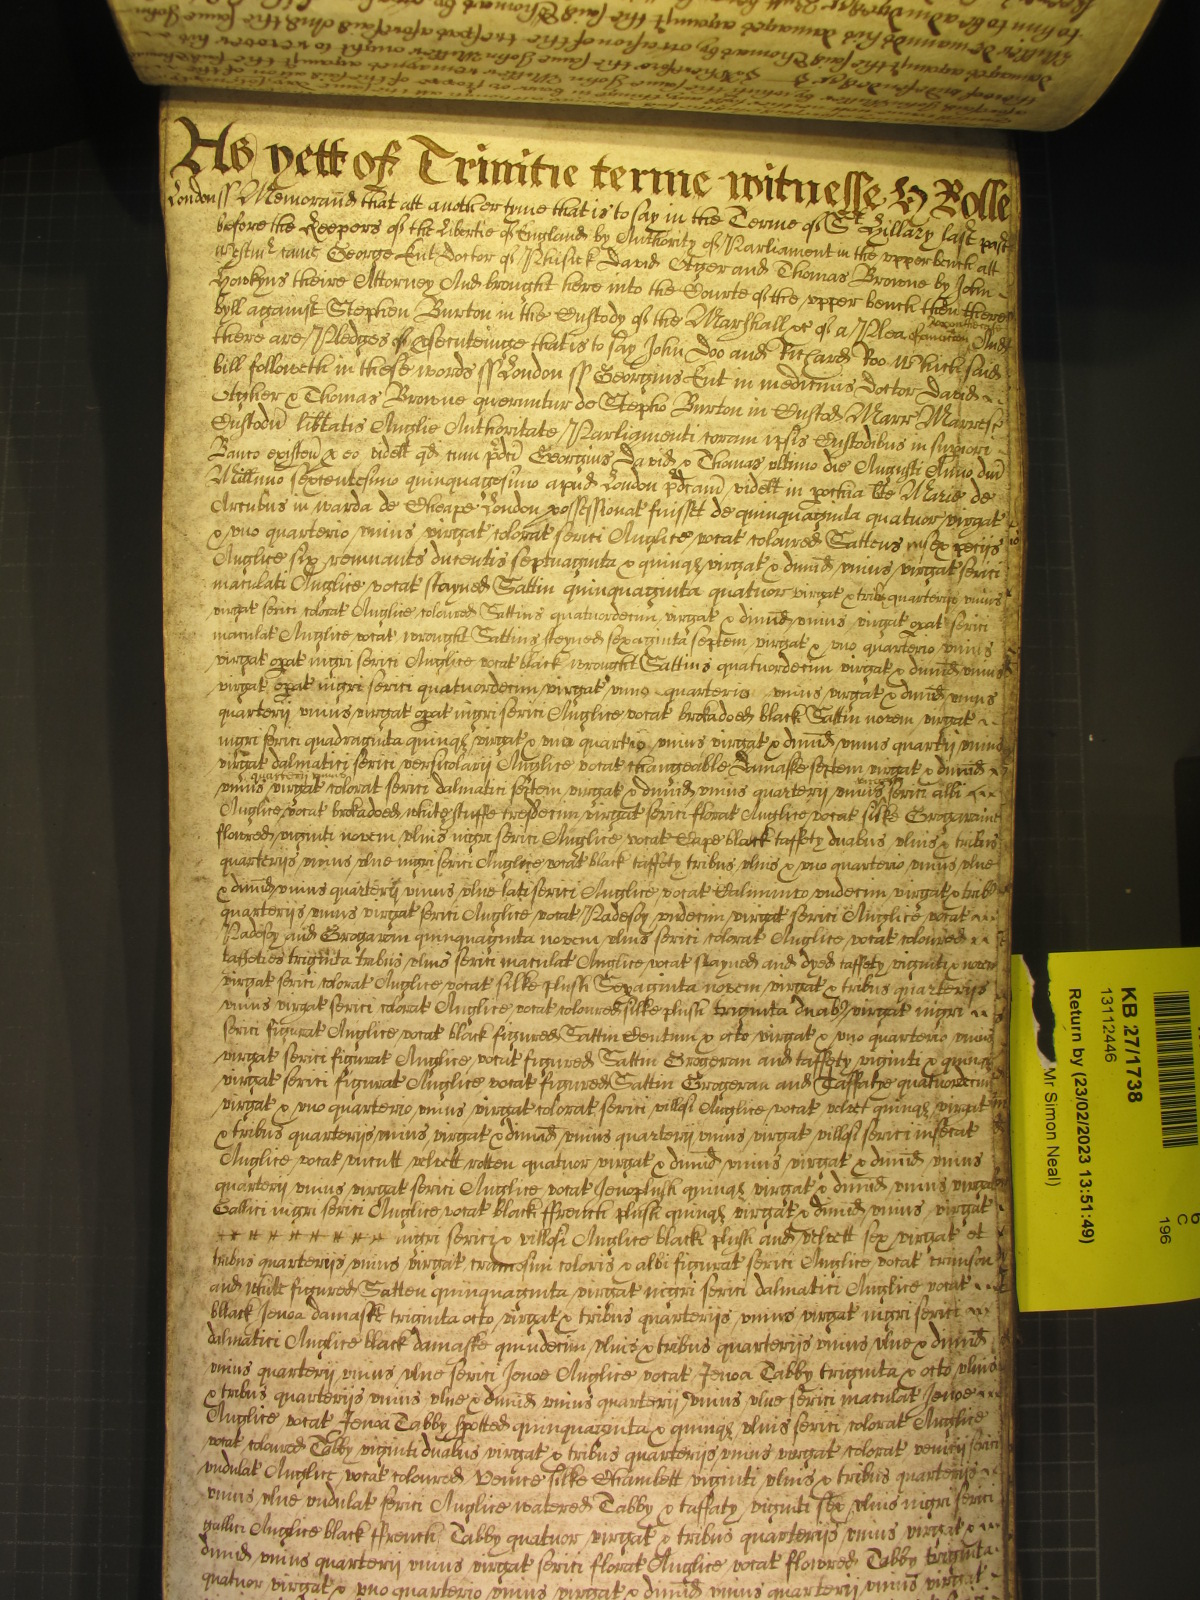 As yett of Trinitie terme witnesse H Rolle
London ss Memorand that att another tyme that is to say in the Terme of St Hillary last past
before the Keepers of the Libertie of England by Authority of Parliament in the upper bench att
Westmr came George Ent Doctor of Phisick David Otger and Thomas Browne by John
Hawkyns theire Attorney And brought here into the Courte of the upper bench then there
byll against Stephen Burton in the Custody of the Marshall &c of a Plea And
there are Pledges of prosecuteinge that is to say John Doo and Richard Roo Which said
bill followeth in these words ss London ss Georgius Ent in medicinis Doctor David
Otgher & Thomas Browne queruntur de Stepho Burton in Custod Marr Marresc
Custodu libtatis Anglie Authoritate Parliamenti coram ipsis Custodibus in superiori
Banco existen & eo vidett qd cum pdci Georgius David & Thomas ultimo die Augusti Anno dni
Millimo sexcentesimo quinquagesimo apud London pdcam vidett in pochia bte Marie de
Arcubus in warda de Cheape London possessionat fuisset de quinquaginta quatuor virgat
& uno quarterio unius virgat colorat serici Anglice vocat coloured Sattens in sex peciis
Anglice six remnants ducentis septuaginta & quinqz virgat & dimid unius virgat serici
maculati Anglice vocat stayned Sattin quinquaginta quatuor virgat & tribz quarterijs unius
virgat serici colorat Anglice coloured Sattins quatuordecim virgat & dimid unius virgat opat serici
maculat Anglice vocat wrought Sattins steyned sexaginta septem virgat & uno quarterio unius
virgat opat nigri serici Anglice vocat black wrought Sattins quatuordecim virgat & dimid unius
virgat opat nigri serici quatuordecim virgat uno quarterio unius virgat & dimid unius
quarterij unius virgat opat nigri serici Anglice vocat brokadoed black Sattin novem virgat
nigri serici quadraginta quinqz virgat & uno quartio unius virgat & dimid unius quartij unius
virgat dalmatici serici versicolarij Anglice vocat changeable Damaske septem virgat & dimid
quarterij unius
unius virgat colorat serici dalmatici septem virgat & dimid unius quarterij unius virgat serici albi
Anglice vocat brokadoed white stuffe tresdecim virgat serici florat Anglice vocat silke Grogaraine
flowred viginti novem ulnis nigri serici Anglice vocat Cape black taffety duabus ulnis & tribus
quarterijs unius ulne nigri serici Anglice vocat black taffety tribus ulnis & uno quarterio unius ulne
& dimid unius quarterij unius ulne lati serici Anglice vocat Caliminco undecim virgat & tribz
quarterijs unius virgat serici Anglice vocat Padesoy undecim virgat serici Anglice vocat
Padesoy and Grogaron quinquaginta novem ulnis serici colorat Anglice vocat coloured
taffeties triginta tribus ulnis serici maculat Anglice vocat stayned and dyed taffety viginti & novem
virgat serici colorat Anglice vocat silke plush Sexaginta novem virgat & tribus quarterijs
unius virgat serici colorat Anglice vocat coloured silke plush triginta duabz virgat nigri
serici figurat Anglice vocat black figured Sattin Centum & octo virgat & uno quarterio unius
virgat serici figurat Anglice vocat figured Sattin Grogeran and taffety viginti & quinqz
virgat serici figurat Anglice vocat figured Sattin Grogeran and Taffatye quatuordecim
virgat & uno quarterio unius virgat colorat serici villosi Anglice vocat velvet quinqz virgat
& tribus quarterijs unius virgat & dimid unius quarterij unius virgat villosi serici insecat
Anglice vocat uncutt velvett rotten quatuor virgat & dimid unius virgat & dimid unius
quarterij unius virgat serici Anglice vocat Jenoplush quinqz virgat & dimid unius virgat
Gallici nigri serici Anglice vocat black ffrench plush quinqz virgat & dimid unius virgat
nigri serici & villosi Anglice black plush and velvett sex virgat et
tribus quarterijs unius virgat cramosini coloris & albi figurat serici Anglice vocat crimson
and white figured Satten quinquaginta virgat nigri serici dalmatici Anglice vocat
bllack Jenoa damaske triginta octo virgat & tribus quarterijs unius virgat nigri serici
dalmatici Anglice black damaske quindecim ulnis & tribus quarterijs unius ulne & dimid
unius quarterij unius ulne serici Jenoe Anglice vocat Jenoa Tabby triginta & octo ulnis
& tribus quarterijs unius ulne & dimid unius quarterij unius ulne serici maculat Jenoe
Anglice vocat Jenoa Tabby spotted quinquaginta & quinqz ulnis serici colorat Anglice
vocat coloured Tabby viginti duabus virgat & tribus quarterijs unius virgat colorat venitij serici
undulat Anglice vocat coloured Venice silke Chamlett viginti ulnis & tribus quarterijs
unius ulne undulat serici Anglice watered Tabby & taffaty viginti sex ulnis nigri serici
gallici Anglice black ffrench Tabby quatuor virgat & tribus quarterijs unius virgat &
dimid unius quarterij unius virgat serici florat Anglice vocat flowred Tabby triginta
quatuor virgat & uno quarterio unius virgat & dimid unius quarterij unius virgat
KB 27/1738
13112446
Return by (23/02/2023 13:51:49)
Mr Simon Neal)
C
196